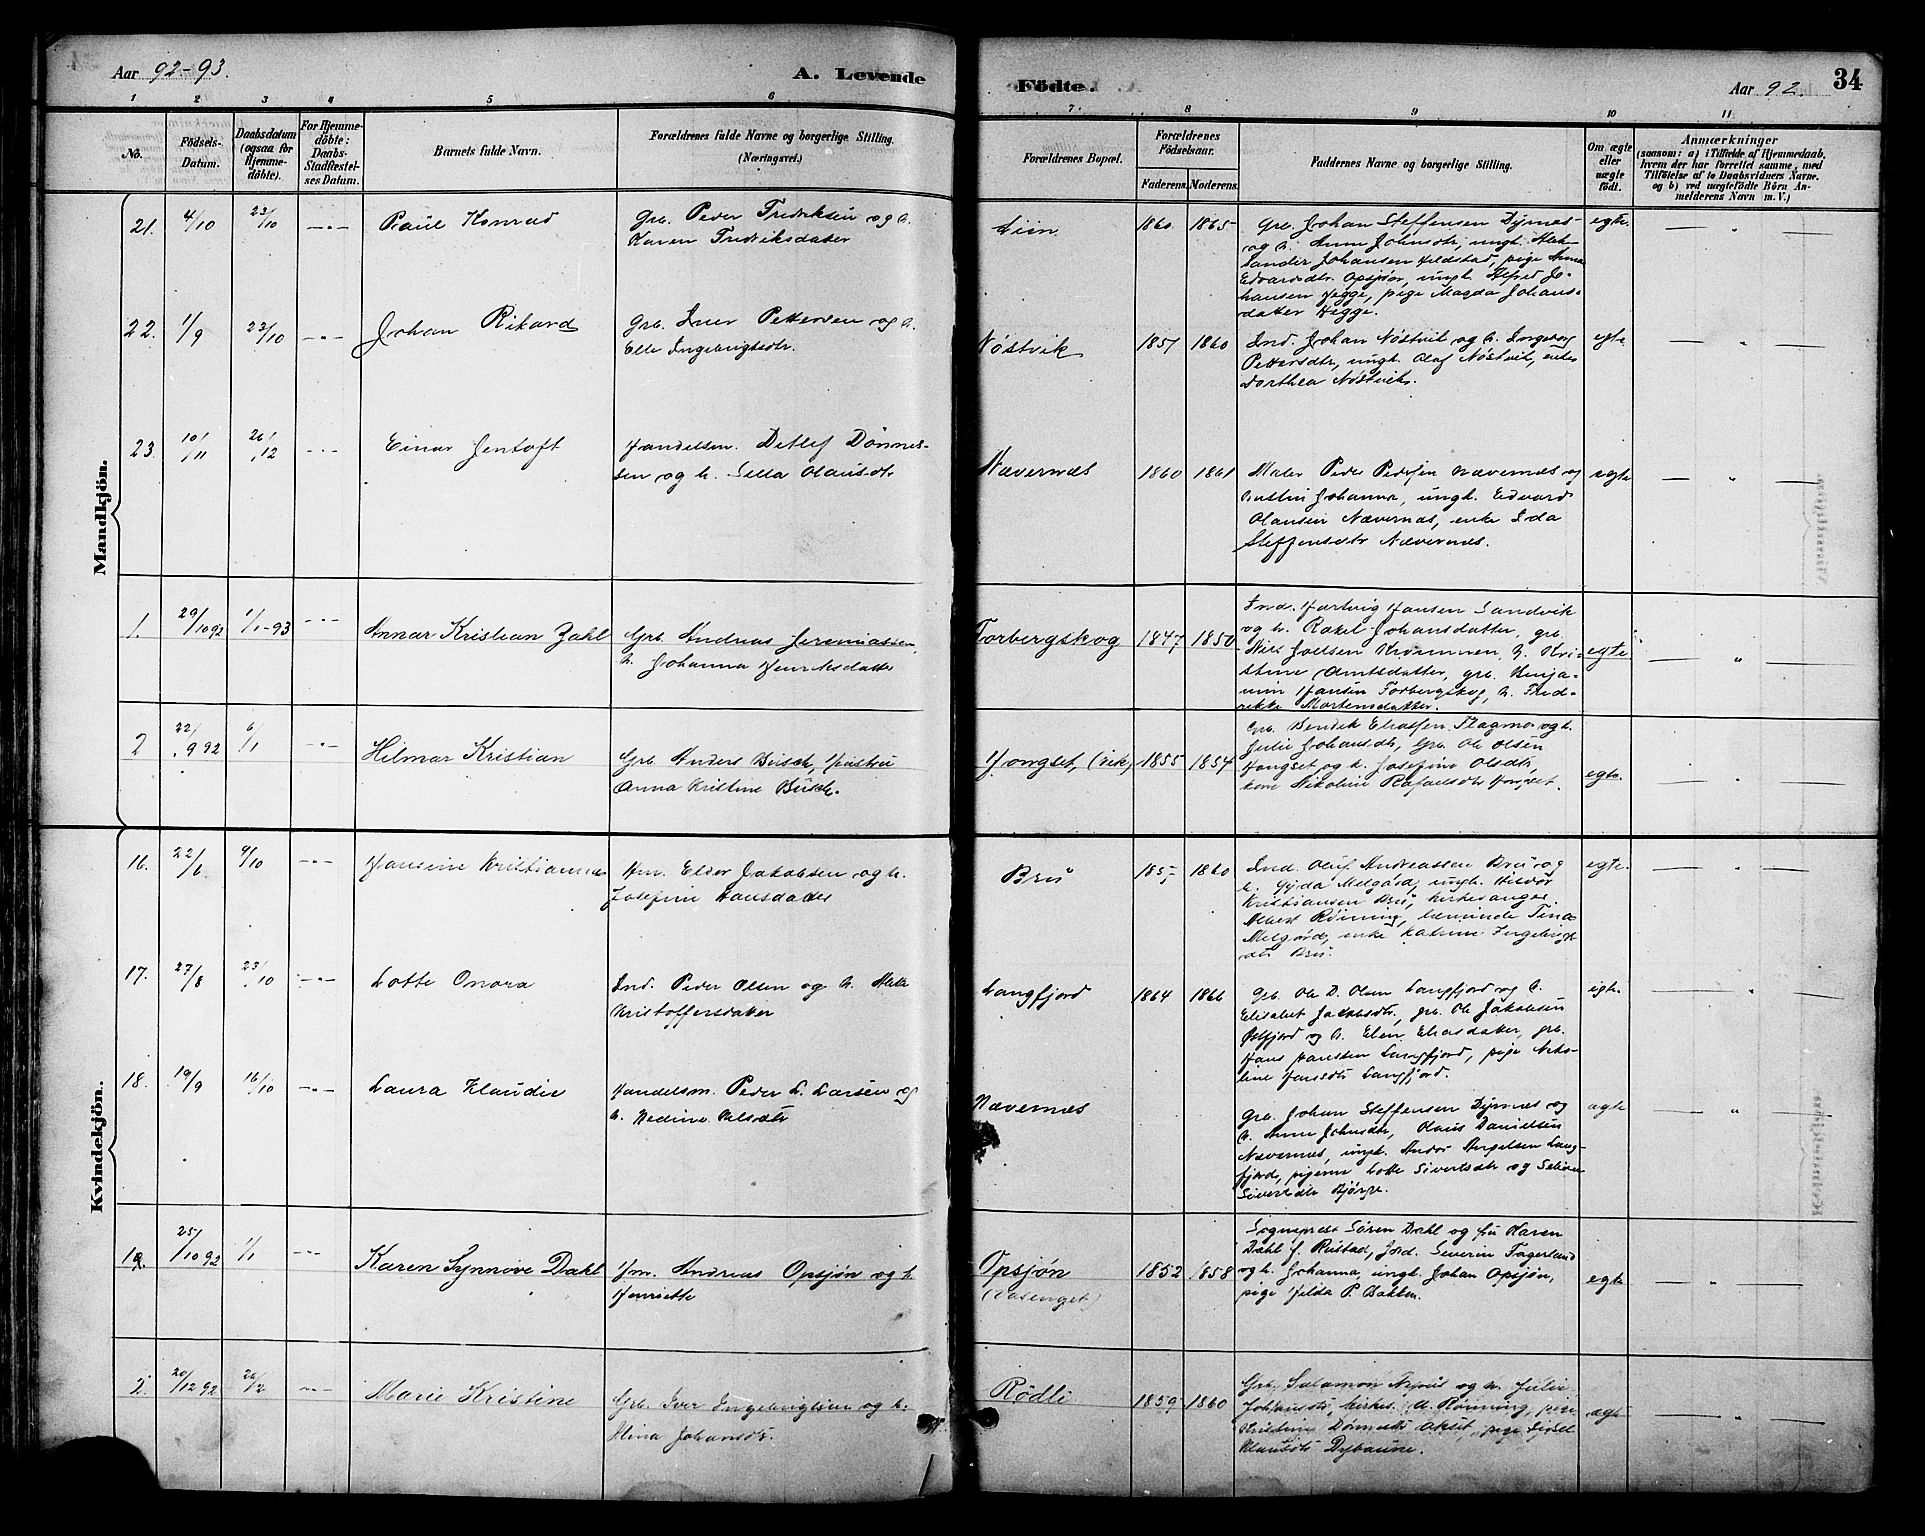 Aar 92-93.
A. Levende
Födte.
Aar 92.
34
1 2 3 4 5 6 7. 8 9 10 11
No.
Födsels-Datum.
Daabsdatum (ogsaa for Hjemme-döbte).
For Hjemme-döbte: Daabs-Stadfæstel-ses Datum.
Barnets fulde Navn.
Forældrenes fulde Navne og borgerlige Stilling. (Næringsvei.)
Forældrenes Bopæl.
Forældrenes Födselsaar.
Faderens. Moderens.
Faddernes Navne og borgerlige Stilling.
Om ægte eller uægte födt.
Anmærkninger
(saasom: a) i Tilfælde af Hjemmedaab,
hvem der har forrettet samme, med
Tilföielse af to Daabsvidners Navne.
og b) ved uægtefödte Börn An-
melderens Navn m.V.)
Mandkjön.
21. 4/10 23/10 Paul Konrad
Grb. Peder Fredriksen og h.
Karen Fredriksdatter
Lien 1860 1865
Grb. Johan Steffensen Dyrnes
og h. Anna Johnsdtr, ungk. Alek-
sander Johansen Heldstad, pige Anna
Edvardsdtr. Opsjøn, ungk. Alfred Jo-
hansen Hegge, pige Magda Johans-
datter Hegge.
egte.
22. 1/9 23/10 Johan Rikard
Grb. Iver Pettersen og h.
Elle Ingebrigtsdtr.
Nøstvik 1857 1860
Ind. Johan Nøstvik og h. Ingeborg
Pettersdtr, ungk. Olaf Nøstvik, enke
Dorthea Nøstvik.
egte
23. 10/11 26/12 Einar Jentoft
Handelsm. Detlef Dønnes-
sen og h. Sella Olausdtr
Nævernæs 1860 1861
Maler Peder Pedersen Nævernæs og
hustru Johanna, ungk. Edvard
Olausen Nævernæs, enke Ida
Steffensdtr Nævernæs.
egte
1. 29/10 92 1/1-93 Annar Kristian Zahl
Grb. Andreas Jeremiassen,
h. Johanna Henriksdatter
Forbergskog 1847 1850
Ind. Hartvig Hansen Sandvik
og h. Rakel Johansdatter, grb.
Nils Joelsen Krommen, h. Kri-
stine Arntsdatter, grb. Benja-
min Hansen Forbergskog, h. Fred-
rikke Mortensdatter.
egte
2 22/9 92 6/1 Hilmar Kristian
Grb. Anders Busch, hustru
Anna Kristine Busch.
Hongset, (vik) 1855 1854
Grb. Bendik Eliassen Flagmo og h.
Julie Johansdtr, Grb. Ole Olsen
Hongset og h. Josefine Olsdtr,
kone Nikoline Rafaelsdtr Hongset.
egte.
Kvindekjön.
16. 22/6 9/10 Hansine Kristianna
Hm. Eldor Jakobsen og h.
Josefine Hansdatter
Bru 1860
Ind. Oluf Andreassen Bru og
h. Gjida Melgård, ungk. Hildor
Kristiansen Bru, kirkesanger
Albert Rønning, Tina
Melgård, enke Katrine Ingebrigt
dtr Bru.
egte.
17. 27/8 23/10 Lotte Onora
Ind. Peder Olsen og h.
Kristoffersdatter
Langfjord 1864 1866
Grb. Ole D. Olsen Langfjord og h.
Elisabet Jakobsdtr, grb. Ole Jakobsen
og h. Elen Eliasdatter, grb.
Hans Hanssen Langfjord, pige Niko-
line Hansdtr Langfjord.
egte.
18. 19/9 16/10 Laura Klaudie
Handelsm. Peder L. Larsen og
h. Nedine Nilsdtr
Nævernæs
Grb. Johan Steffensen Dyrnes og
h. Anna Johnsdtr, Olaus Danielsen
Nævernes, ungk. Andor Bergelsen Lang-
fjord, pigerne Lotte Sivertsdtr og Seline
Sivertsdtr
ægte
19. 25/10 92 1/1 Karen Synnøve Dahl
Hm. Andreas Opsjøn og h.
Henriette
Opsjøn
(Vasenget)
1852 1858
Sogneprest Søren Dahl og fru Karen
Dahl f. Rustad, Severin Fagerland
og h. Johanna, ungk. Johan Opsjøn,
pige Hilda P. Bakken.
egte
2. 20/12 92 26/2 Marie Kristine
Grb. Iver Ingebrigtsen og h.
Stina Johansdtr.
Rødli 1859 1860
Grb. Salamon og h. Julie
Johansdtr, kirkes. A. Rønning, pige
Kristine pige Sigsel
Klausdtr
ægt